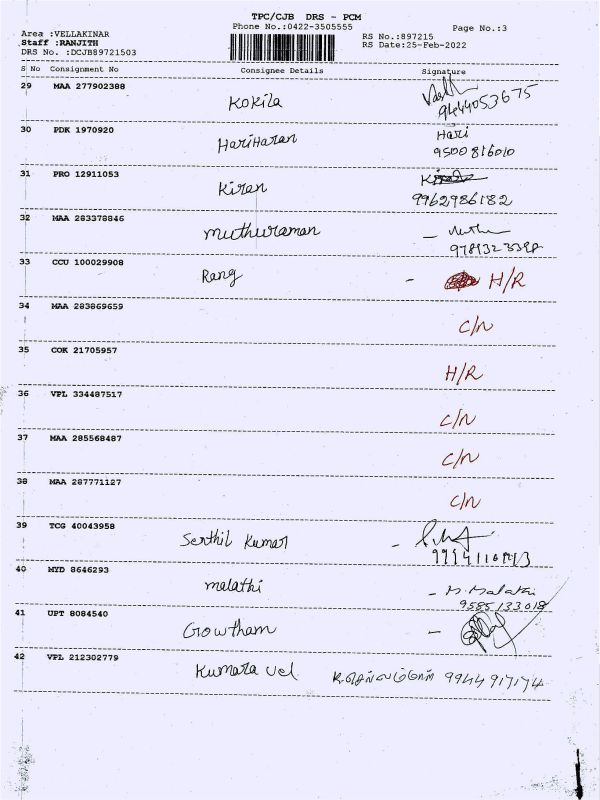 TPC/CJB DRS - PCM
Phone No.:0422-3505555
Page No.:3
Area :VELLAKINAR
RS No.:897215
Staff :RANJITH
RS Date:25-Feb-2022
DRS No. :DCJB89721503
S No Consignment No Consignee Details Signature
29 MAA 277902388
Kokila
9444053675
30 PDK 1970920
Hariharan Hari
9500816010
31 PRO 12911053
Kiran
9962986182
32 MAA 283378846
Muthuraman -
33 CCU 100029908
Rang - H/R
34 MAA 283869659
C/N
35 COK 21705957
H/R
36 VPL 334487517
C/N
37 MAA 285568487
C/N
38 MAA 287771127
C/N
39 TCG 40043958
Senthil Kumar -
40 MYD 8646293
malathi - M. Malathi
9585133018
41 UPT 8084540
Gowtham -
42 VPL 212302779
Kumara vel 9944917174